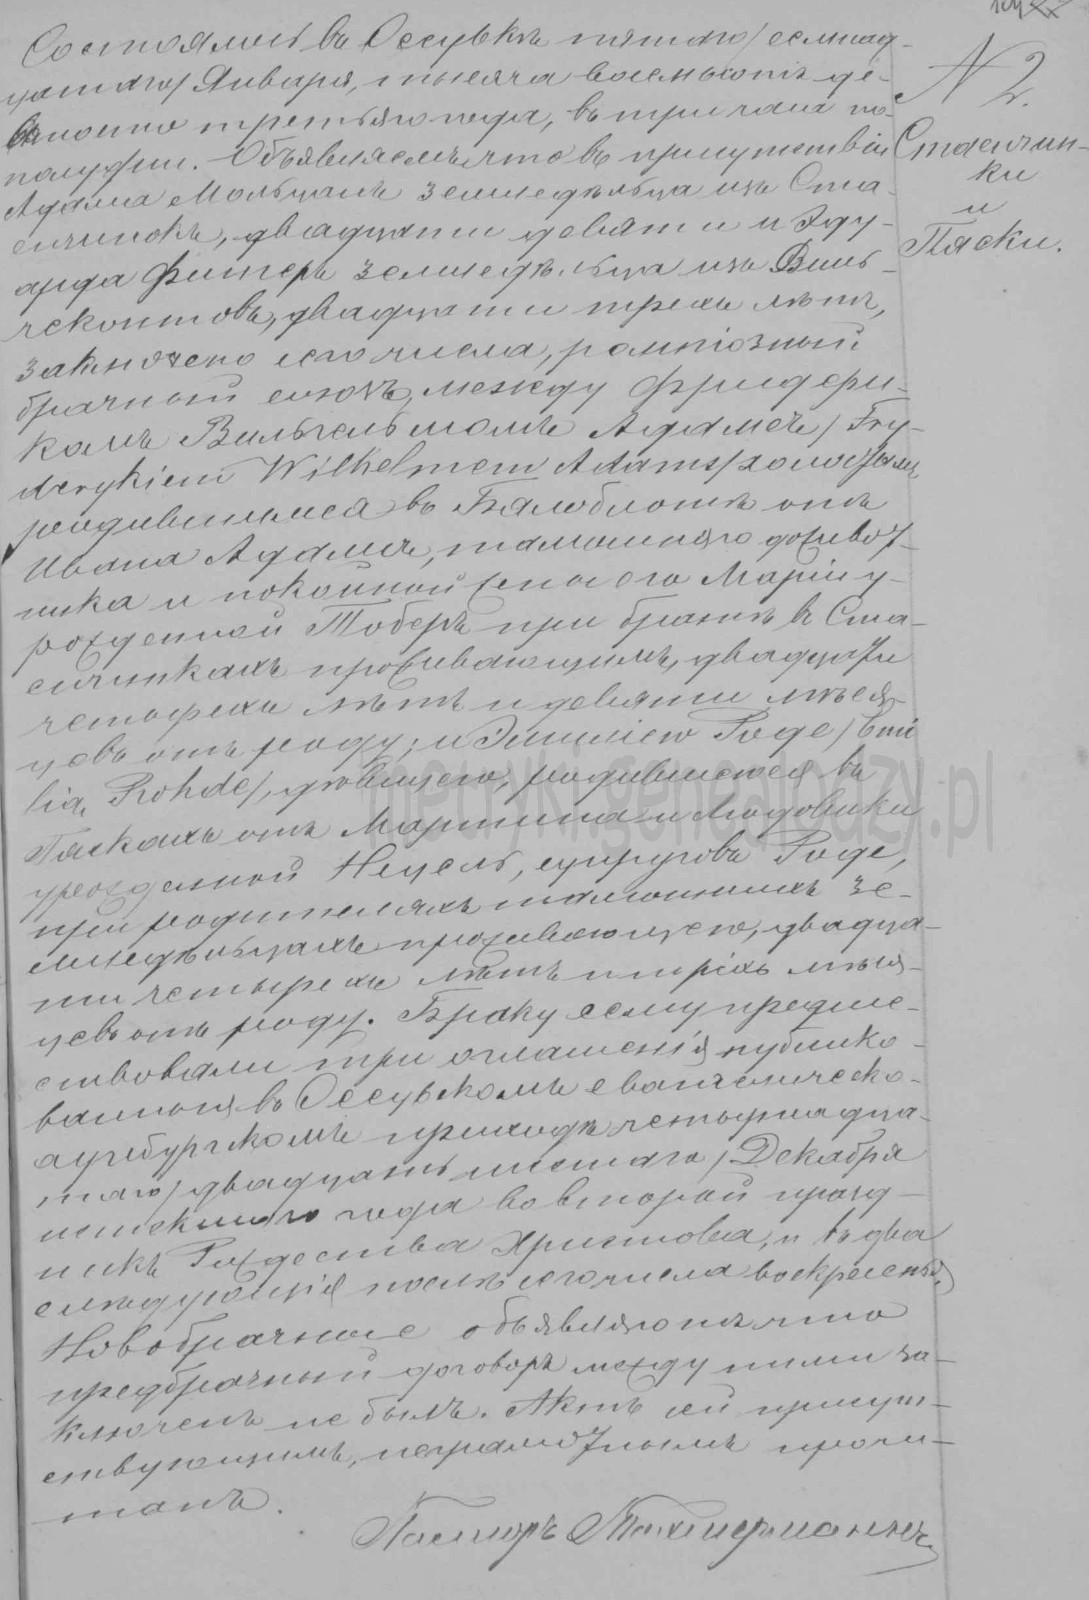 N 2.
Стаенчин-
ки
и
Пяски.
Состоялось въ Оссувкѣ пятаго/семнад-
цатаго/Января, тысяча восемьсотъ де-
вяносто третьяго года, въ три часа по-
полудни. Объявляемъ что въ присутствіи
Адама Мольцанъ земледѣльца изъ Ста-
енчинокъ, двадцати девяти и Эду-
арда Фитеръ земледѣльца изъ Виль-
чеконтовъ, двадцати трехъ лѣтъ,
заключено сего числа, религіозный
брачный союзъ, между Фридери-
комъ Вильгельмомъ Адамсъ/Fry-
derykiem Wilhelmem Adams/холостымъ,
родившимся въ Бялоблотѣ отъ
Ивана Адамсъ, тамошняго доживот-
ника и покойной жены его Маріи у-
рожденной Тоберъ при братѣ въ Ста-
енчинкахъ проживающимъ, двадцати
четырехъ лѣтъ и девяти мѣся-
цевъ отъ роду; и Эмиліею Роде/Emi
lia Rohde/, дѣвицею, родившеюся въ
Пяскахъ отъ Мартина и Людовики
урожденной Нецель, супруговъ Роде,
при родителяхъ тамошнихъ зе-
мледѣльцахъ проживающею, двадца-
ти четырехъ лѣтъ и трехъ мѣся-
цевъ отъ роду. Браку сему предше-
ствовали три оглашенія публико-
ванныя въ Оссувскомъ евангелическо-
аугсбургскомъ приходѣ четырнадца-
таго/двадцать шестаго/Декабря
истекшаго года во второй празд-
никъ Рождества Христова, и въ два
слѣдующія послѣ сего числа воскресенья,
Новобрачные объявляютъ что
предбрачный договоръ между ними за-
ключенъ не былъ. Актъ сей присут-
ствующимъ, неграмотнымъ прочи-
танъ.
Пасторъ
metryki.genealodzy.pl